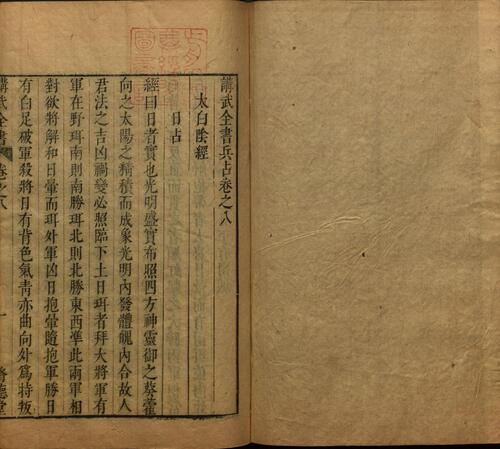 講武全書兵占卷之八
太白陰經
日占
經曰日者實也光明盛實布照四方神靈御之葵藿
向之太陽之精積而成象光明內發體魄內合故人
君法之吉凶禍變必照臨下土日珥者拜大將軍有
軍在野珥南則南勝珥北則北勝東西準此兩軍相
對欲將解和日暈而珥外軍凶日抱暈隨抱軍勝日
有白足破軍殺將日有背色氣青亦曲向外為持叛
講武全書
卷之八
一